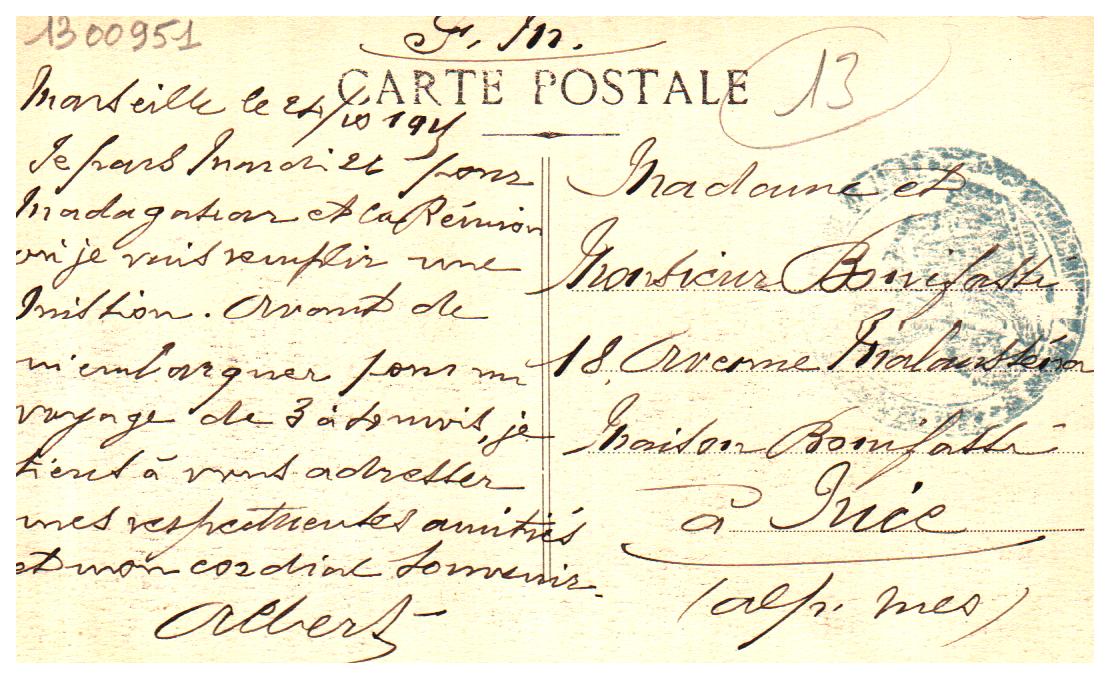 1300951
F. M.
CARTE POSTALE
13
Marseille le 24/10 191
Je pars Mardi 26 pour
Madagascar et la Réunion
où je vais remplir une
Mission. Avant de
m'embarquer pour un
voyage de 3 à 4 mois, je
tiens à vous adresser
mes respectueuses amitiés
et mon cordial souvenir.
Albert
Madame et
Monsieur Bonifassi
18, Avenue Malausséna
Maison Bonifassi
à Nice
(alp. mes)